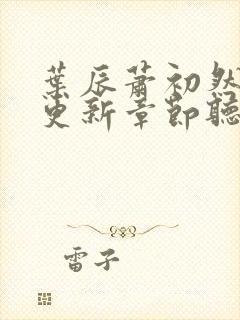 葉辰蕭初然
更新章節聽
雷子